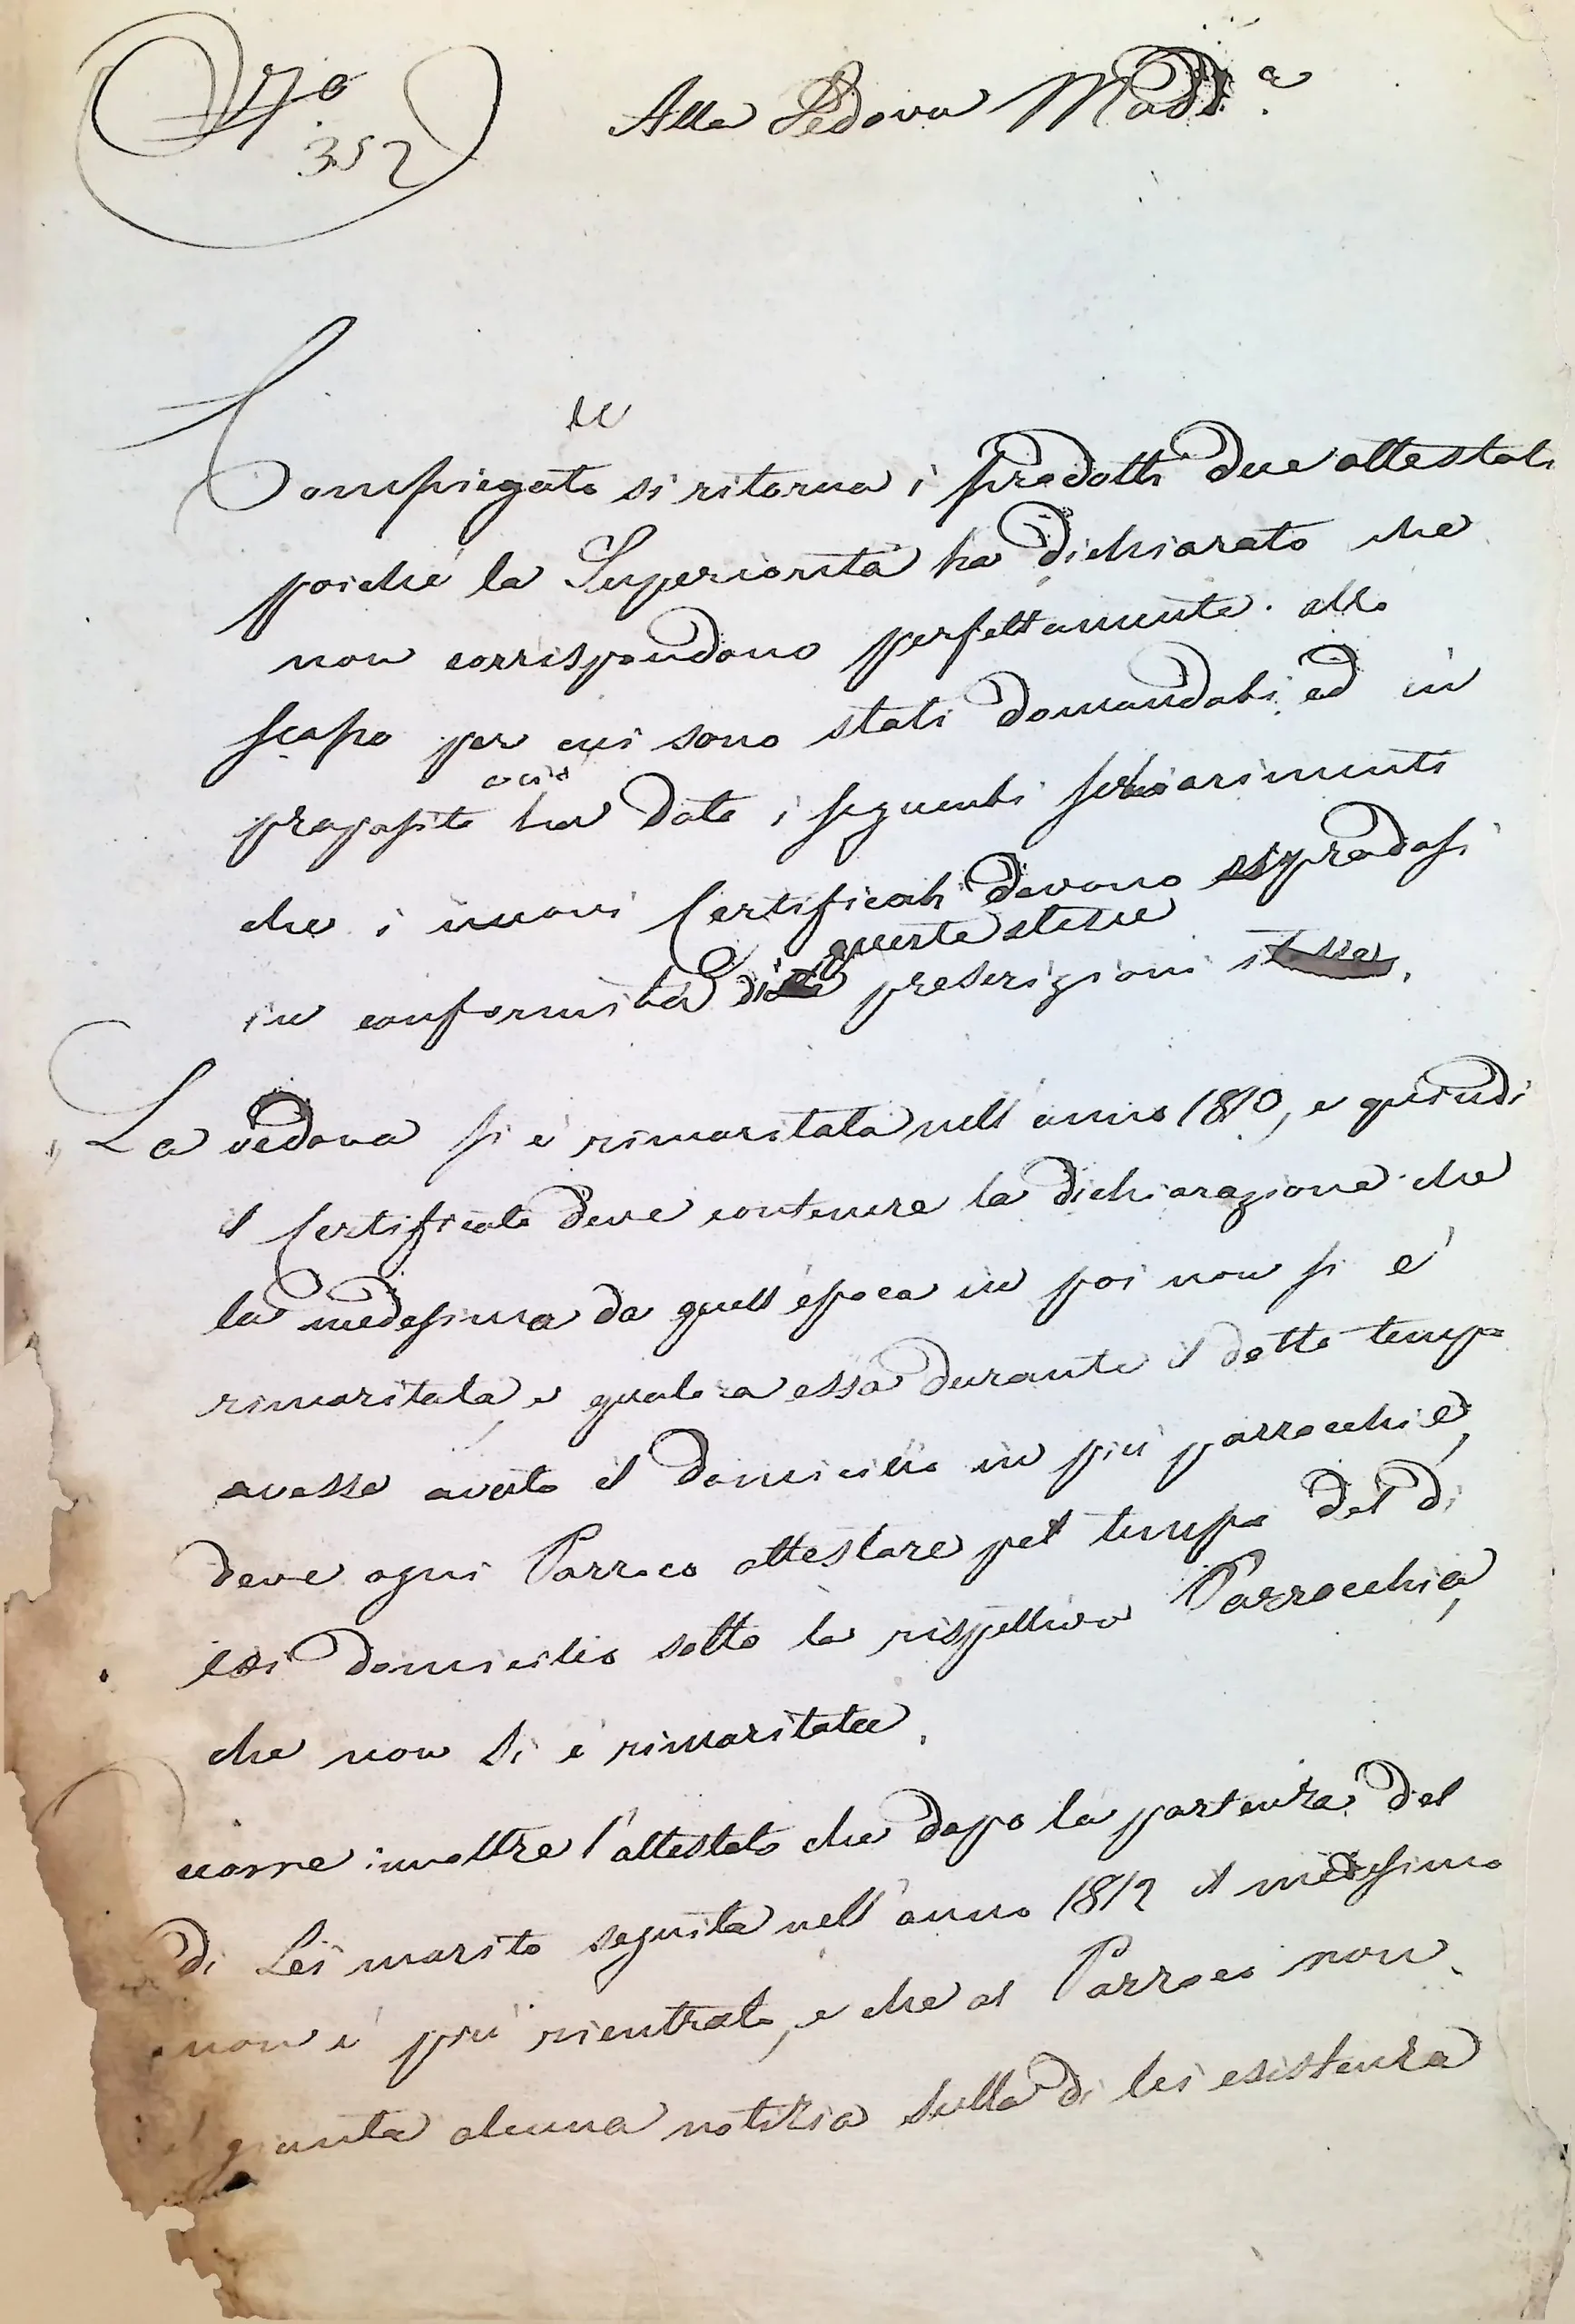 N.o
352
Alla Vedova Madd.a
le
Compiegato si ritorna i prodotti due attestati
poiché la Superiorità ha dichiarato che
non corrispondono perfettamente allo
scopo per cui sono stati domandati ed in
proposito ha dato i seguenti schiarimenti
che i nuovi Certificati devono
queste stesse
in conformità di prescrizioni stesse.
„ La vedova si è rimaritata nell'anno 1810, e quindi
il Certificato deve contenere la dichiarazione che
la medesima da quell'epoca in poi non si è
rimaritata, e qualora essa durante il detto tempo
avesse avuto il domicilio in più parrocchie,
deve ogni Parroco attestare pel tempo del di
lei domicilio sotto la rispettiva Parrocchia,
che non si è rimaritata.
inoltre l'attestato che dopo la partenza del
di Lei marito seguita nell'anno 1812 il medesimo
non è più rientrato, e che al Parroco non
giunta alcuna notizia sulla di lei esistenza